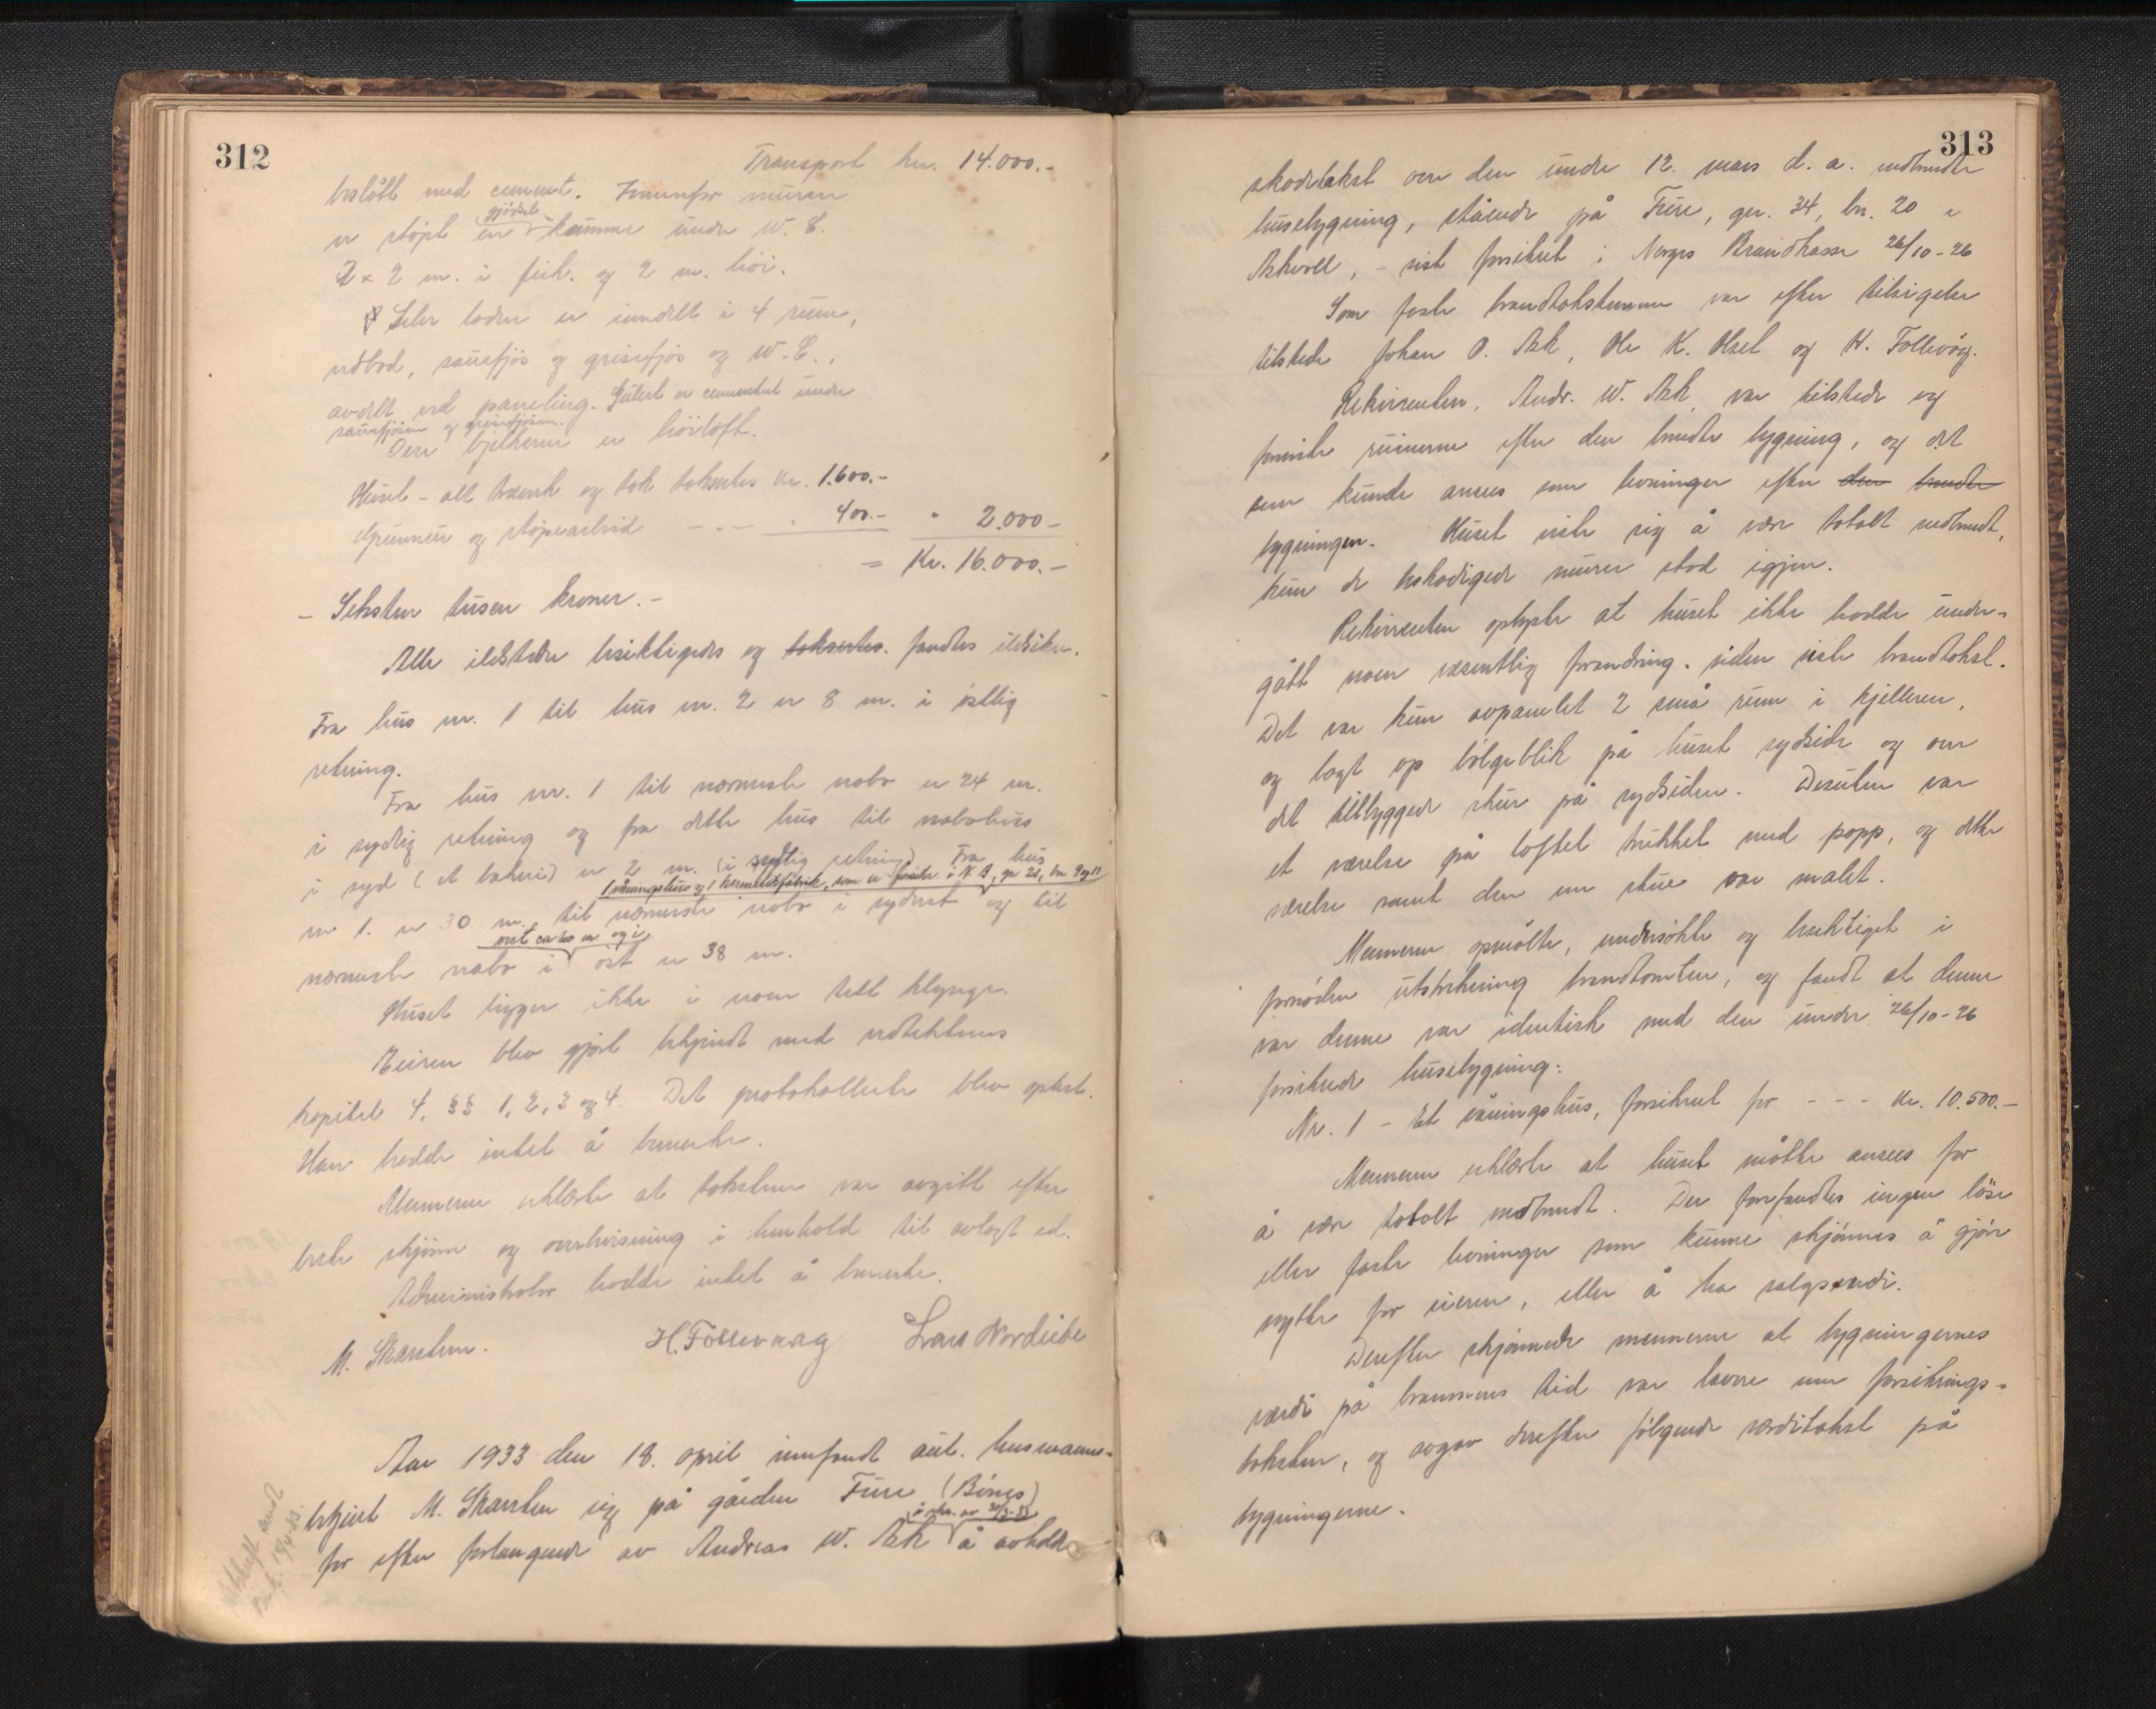 312
Transport kr. 14.000.-
beslått med cement. Innenfor muren
er støpt en gjødselkumme under W. C.
2 x 2 m. i firk. og 2 m. høi.
Selve laden er inndelt i 4 rum,
vedbod, sauefjøs og grisefjøs og W. C.,
avdelt ved paneling. Gulvet er cementert under
sauefjøsen og grisefjøsen.
Over bjelkerne er høiloft.
Huset - alt træverk og tak takseres kr. 1.600.-
Grunnmur og støpearbeid - - - " 400.- " 2.000 -
= Kr. 16.000.-
- Seksten tusen kroner. -
Alle ildsteder besiktigedes og taksertes. fandtes ildsikre.
Fra hus nr. 1 til hus nr. 2 er 8 m. i østlig
retning.
Fra hus nr. 1 til nærmeste nabo er 24 m.
i sydlig retning og fra dette hus til nabohus
i syd (et bakeri) er 2 m. (i sydlig retning) Fra hus
1 våningshus og 1 hermetikfabrik, som er forsikr. i N. B., gr 22, bn 9 og 11
nr 1. er 30 m. til nærmeste nabo i sydvest og til
vest ca 20 m og i
nærmeste nabo i øst er 38 m.
Huset ligger ikke i noen tett klynge.
Eieren blev gjort bekjendt med vedtektenes
kapitel 4, §§ 1, 2, 3 og 4. Det protokollerte blev oplest.
Han hadde intet å bemerke.
Mennerne erklærte at taksten var avgitt efter
beste skjønn og overbevisning i henhold til avlagt ed.
Administrator hadde intet å bemerke.
M. Skarstein. H. Follevaag Lars Nordeide
Aar 1933 den 18. april innfandt aut. lensmanns-
betjent M. Skarstein sig på gården Fure (Bönes)
i skr. av 30/3-33
for efter forlangende av Andreas W. Ask å avholde
313
skadetakst over den under 12. mars d. a. nedbrendte
husebygning, stående på Fure, gr. 34, bn. 20 i
Askvoll, - sist forsikret i Norges Brandkasse 26/10-26
Som faste brandtakstmenn var efter tilsigelse
tilstede Johan O. Ask, Ole K. Olset og H. Follevåg.
Rekvirenten, Andr. W. Ask var tilstede og
foreviste ruinerne efter den brendte bygning, og det
som kunde ansees som levninger efter den brendte
bygningen. Huset viste sig å være totalt nedbrendt,
kun de beskadigede murer stod igjen.
Rekvirenten oplyste at huset ikke hadde under-
gått noen væsentlig forandring, siden siste brandtakst.
Det var kun avpanelet 2 små rum i kjelleren,
og lagt op bølgeblik på huset sydside og over
det tilbyggede skur på sydsiden. Desuten var
et værelse på loftet trukket med papp, og dette
værelse samt den ene stue var malet.
Mennerne opmålte, undersøkte og besiktiget i
fornøden utstrekning brandtomten, og fandt at denne
var denne var identisk med den under 26/10-26
forsikrede husebygning:
Nr. 1 - Et våningshus, forsikret for - - - kr. 10.500.-
Mennerne erklærte at huset måtte ansees for
å være totalt nedbrendt. Der forefandtes ingen løse
eller faste levninger som kunne skjønnes å gjøre
nytte for eieren, eller å ha salgsverdi.
Derefter skjønnede mennerne at bygningernes
værdi på brannens tid var lavere enn forsikrings-
taksten, og avgav derefter følgende værditakst på
bygningerne.